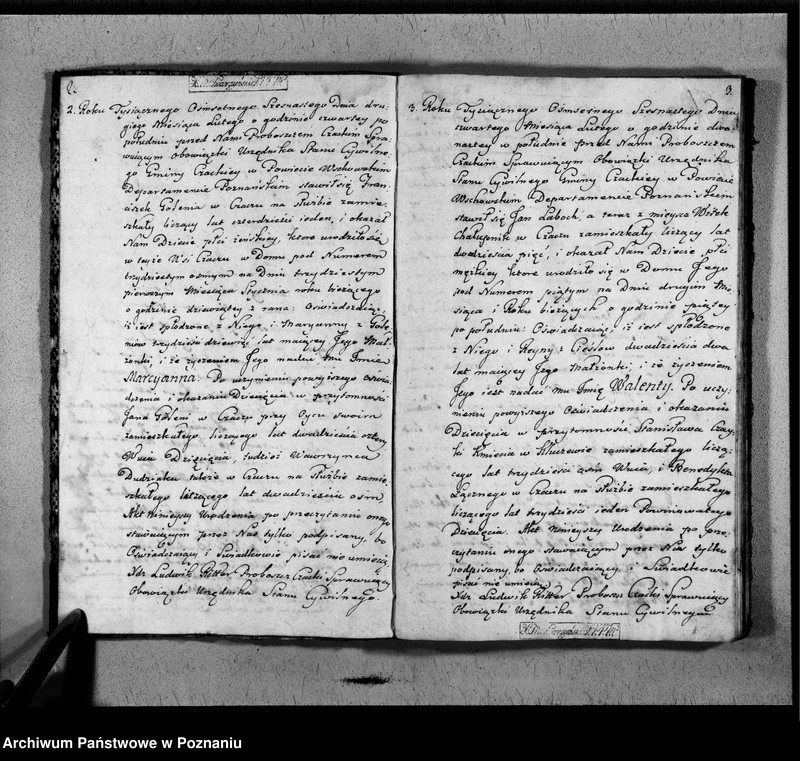 2.
2. Roku Tysiącznego Ośmsetnego Szesnastego Dnia dru-
giego Miesiąca Lutego o godzinie czwartey po
południu przed Nami Proboszczem Czackim Spra-
wuiącym Obowiązki Urzędnika Stanu Cywilne-
go Gminy Czackiey w Powiecie Wschowskim
Departamencie Poznańskim stawił się Fran-
ciszek Golenia w Czaczu na służbie zamie-
szkały liczący lat czterdzieści ieden, i okazał
Nam Dziecie płci żeńskiey, które urodziło się
w teyże Wsi Czaczu w Domu pod Numerem
trzydziestym osmym na Dniu trzydziestym
pierwszym Miesiąca Stycznia roku bieżącego
o godzinie dziewiątey z rana: Oświadczaiąc
iż iest spłodzone z Niego i Maryanny z
trzydzieści dziewięć lat maiącey Jego Mał-
żonki, i że życzeniem Jego nadać mu Imie
Marcyanna. Po uczynieniu powyższego oswia-
dczenia i okazaniu Dziecięcia w przytomności
Jana Goleni w Czaczu przy Oycu swoim
zamieszkałego liczącego lat dwadzieścia cztery
Wuia Dziecięcia, tudzież Wawrzyna
Dudziaka także w Czaczu na służbie zamie-
szkałego liczącego lat dwadzieścia osm
Akt Ninieyszy Urodzenia po przeczytaniu onego
stawaiącym przez Nas tylko podpisany, bo
Oświadczaiący i Swiadkowie pisać nie umieią.
Xdz Ludwik Ritter Proboszcz Czacki Sprawuiący
Obowiązki Urzędnika Stanu Cywilnego.
3.
3. Roku Tysiącznego Ośmsetnego Szesnastego Dnia
czwartego Miesiąca Lutego o godzinie dwu-
nastey w południe przed Nami Proboszczem
Czackim Sprawuiącym Obowiązki Urzędnika
Stanu Cywilnego Gminy Czackiey w Powiecie
Wschowskim Departamencie Poznańskim
stawił się Jan Laboch, a teraz z mieysca
Chałupnik w Czaczu zamieszkały liczący lat
dwadzieścia pięć, i okazał Nam Dziecie płci
męzkiey które urodziło się w Domu Jego
pod Numerem piątym na Dniu drugim Mie-
siąca i Roku bieżących o godzinie piątey
po południu: Oświadczaiąc iż iest spłodzone
z Niego i Reyny z Cieslow dwadzieścia dwa
lat maiącey Jego Małżonki; i że życzeniem
Jego iest nadać mu Imię Walenty. Po uczy-
nieniu powyższego Oświadczenia i okazaniu
Dziecięcia w przytomności Stanisława
Kmiecia w Kluczewie zamieszkałego liczą-
cego lat trzydzieści osm Wuia, i Benedykta
Łącznego w Czaczu na służbie zamieszkałego
liczącego lat trzydzieści ieden Powinowatego
Dziecięcia. Akt Ninieyszy Urodzenia po prze-
czytaniu onego stawaiącym przez Nas tylko
podpisany, bo Oświadczaiący i Swiadkowie
pisać nie umieią.
Xdz Ludwik Ritter Proboszcz Czacki Sprawuiący
Obowiązki Urzędnika Stanu Cywilnego
Archiwum Państwowe w Poznaniu